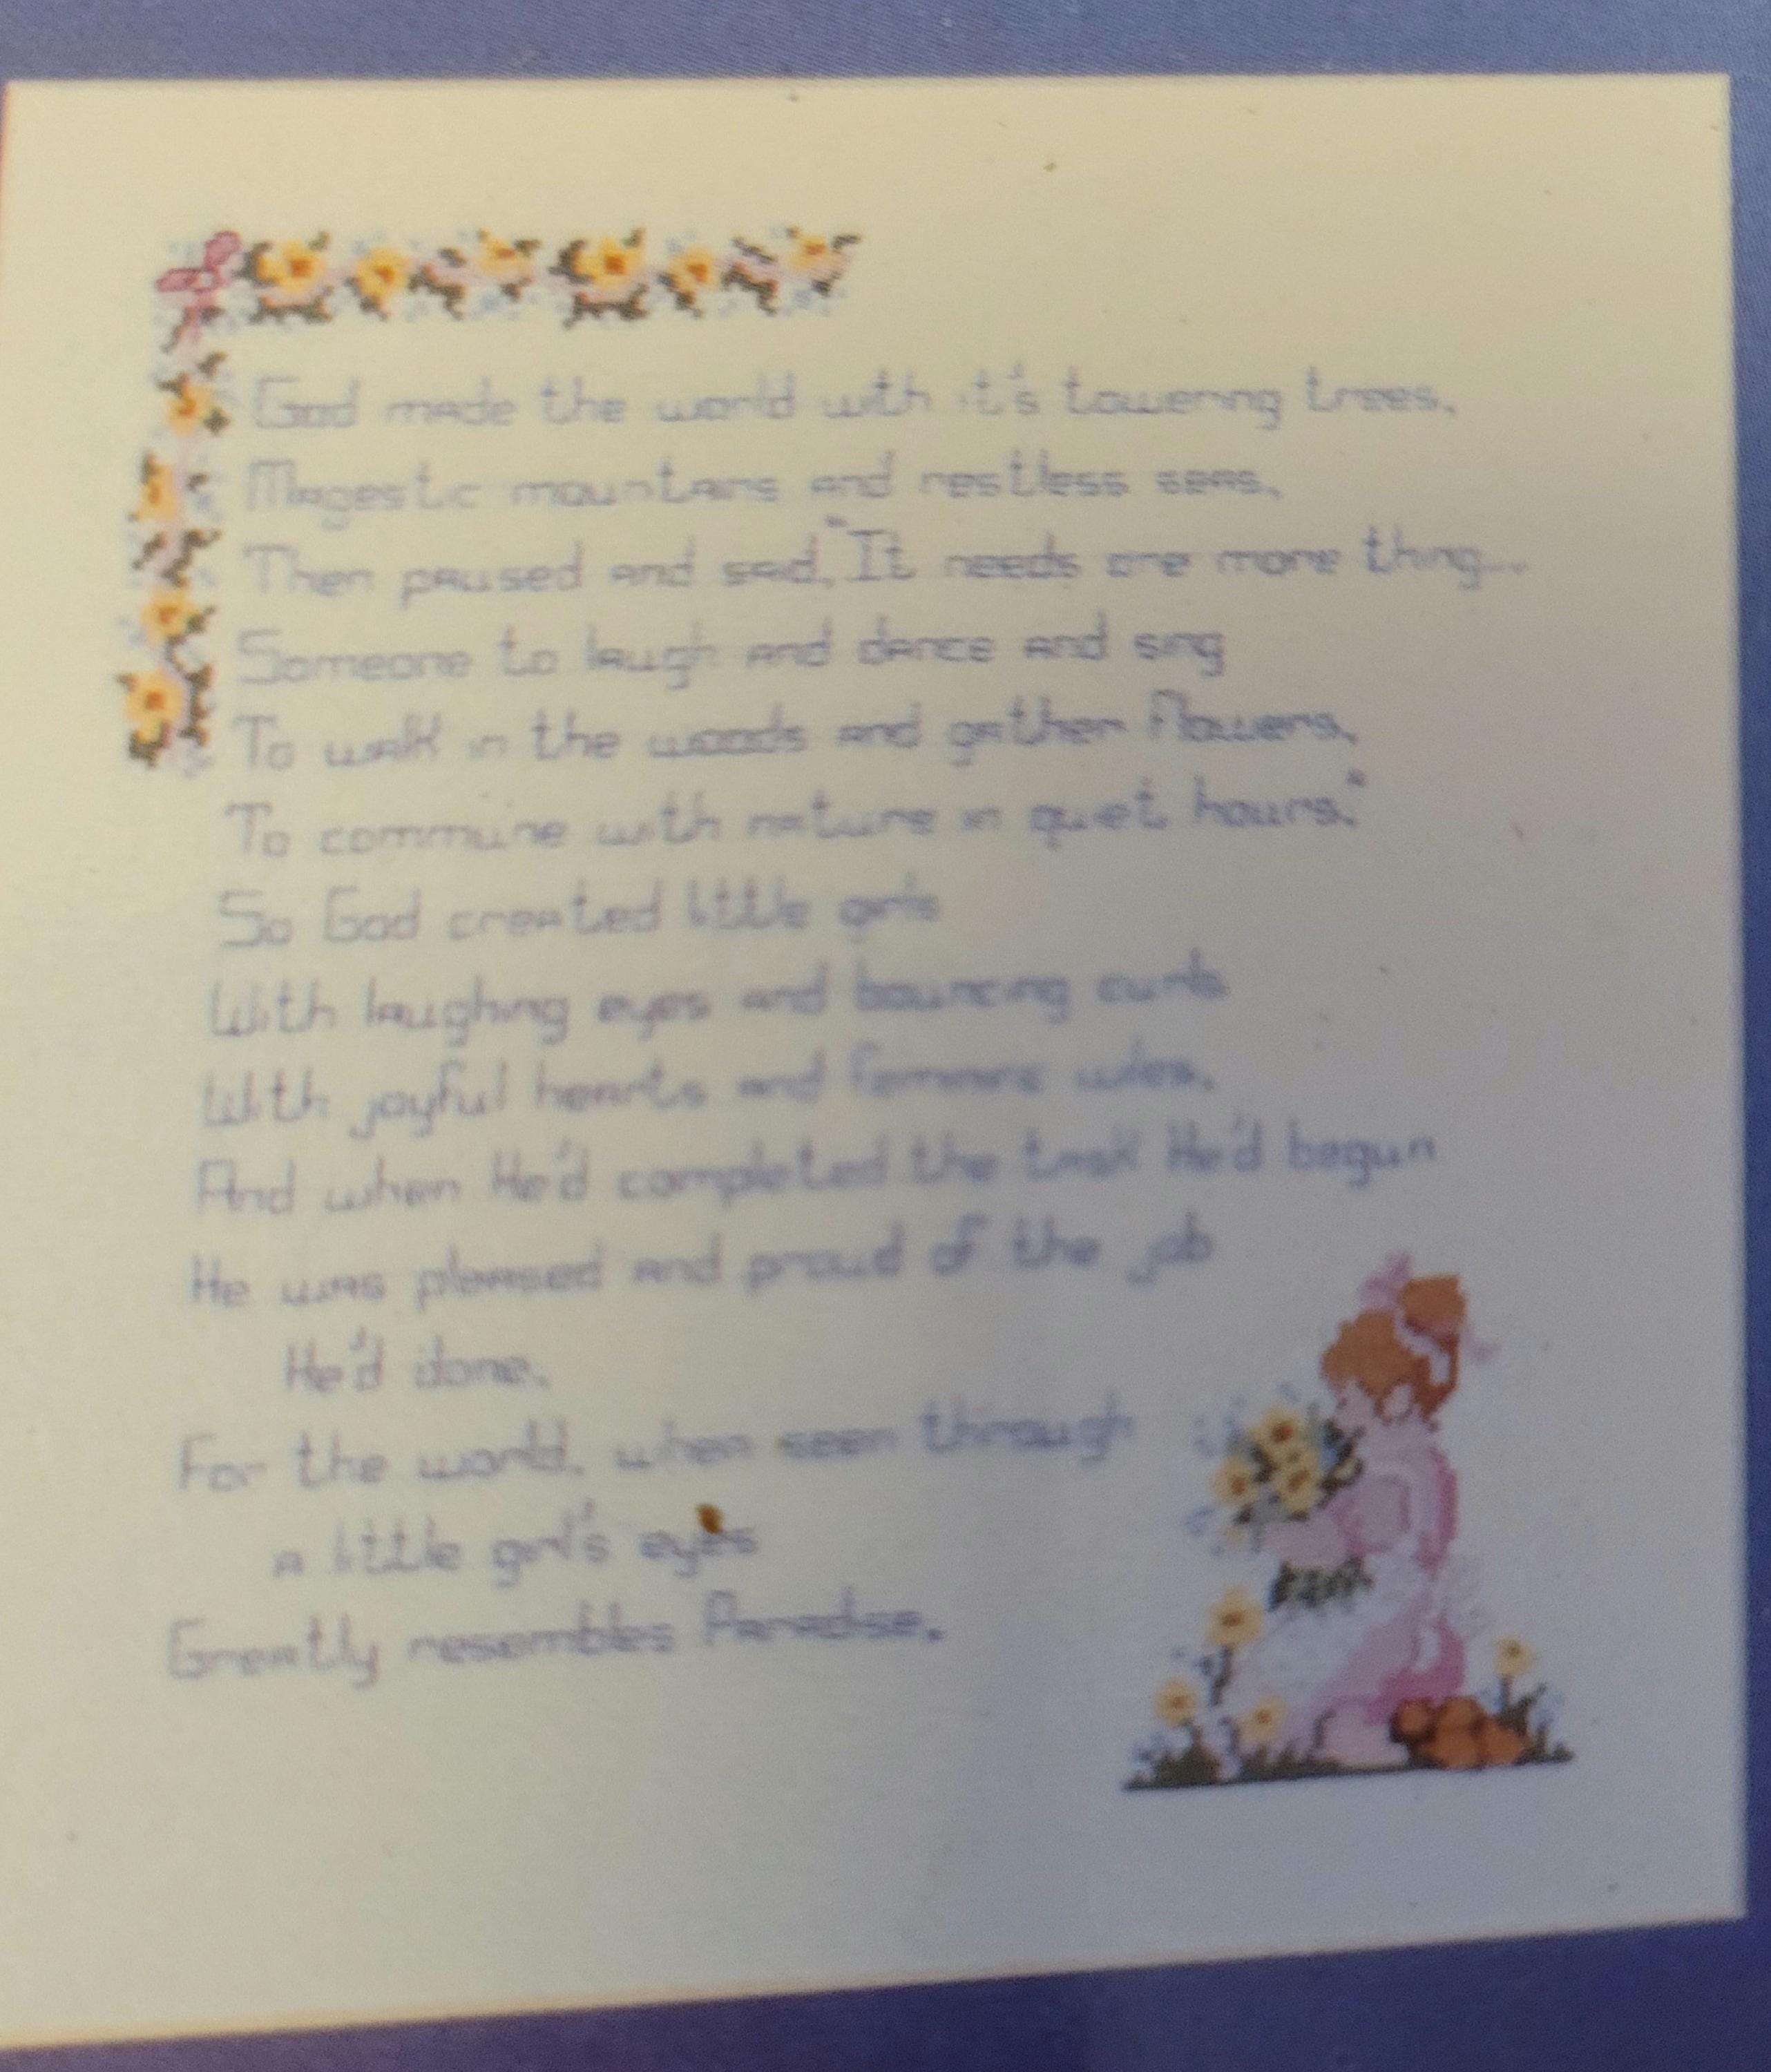 God made the world with it's towering trees,
Magestic mountains and restless seas,
Then paused and said, "It needs one more thing...
Someone to laugh and dance and sing
To walk in the woods and gather flowers,
To commune with nature in quiet hours."
So God created little girls
With laughing eyes and bouncing curls
With joyful hearts and feminine wiles,
And when He'd completed the task He'd begun
He was pleased and proud of the job
He'd done.
For the world, when seen through
a little girl's eyes
Greatly resembles Paradise.